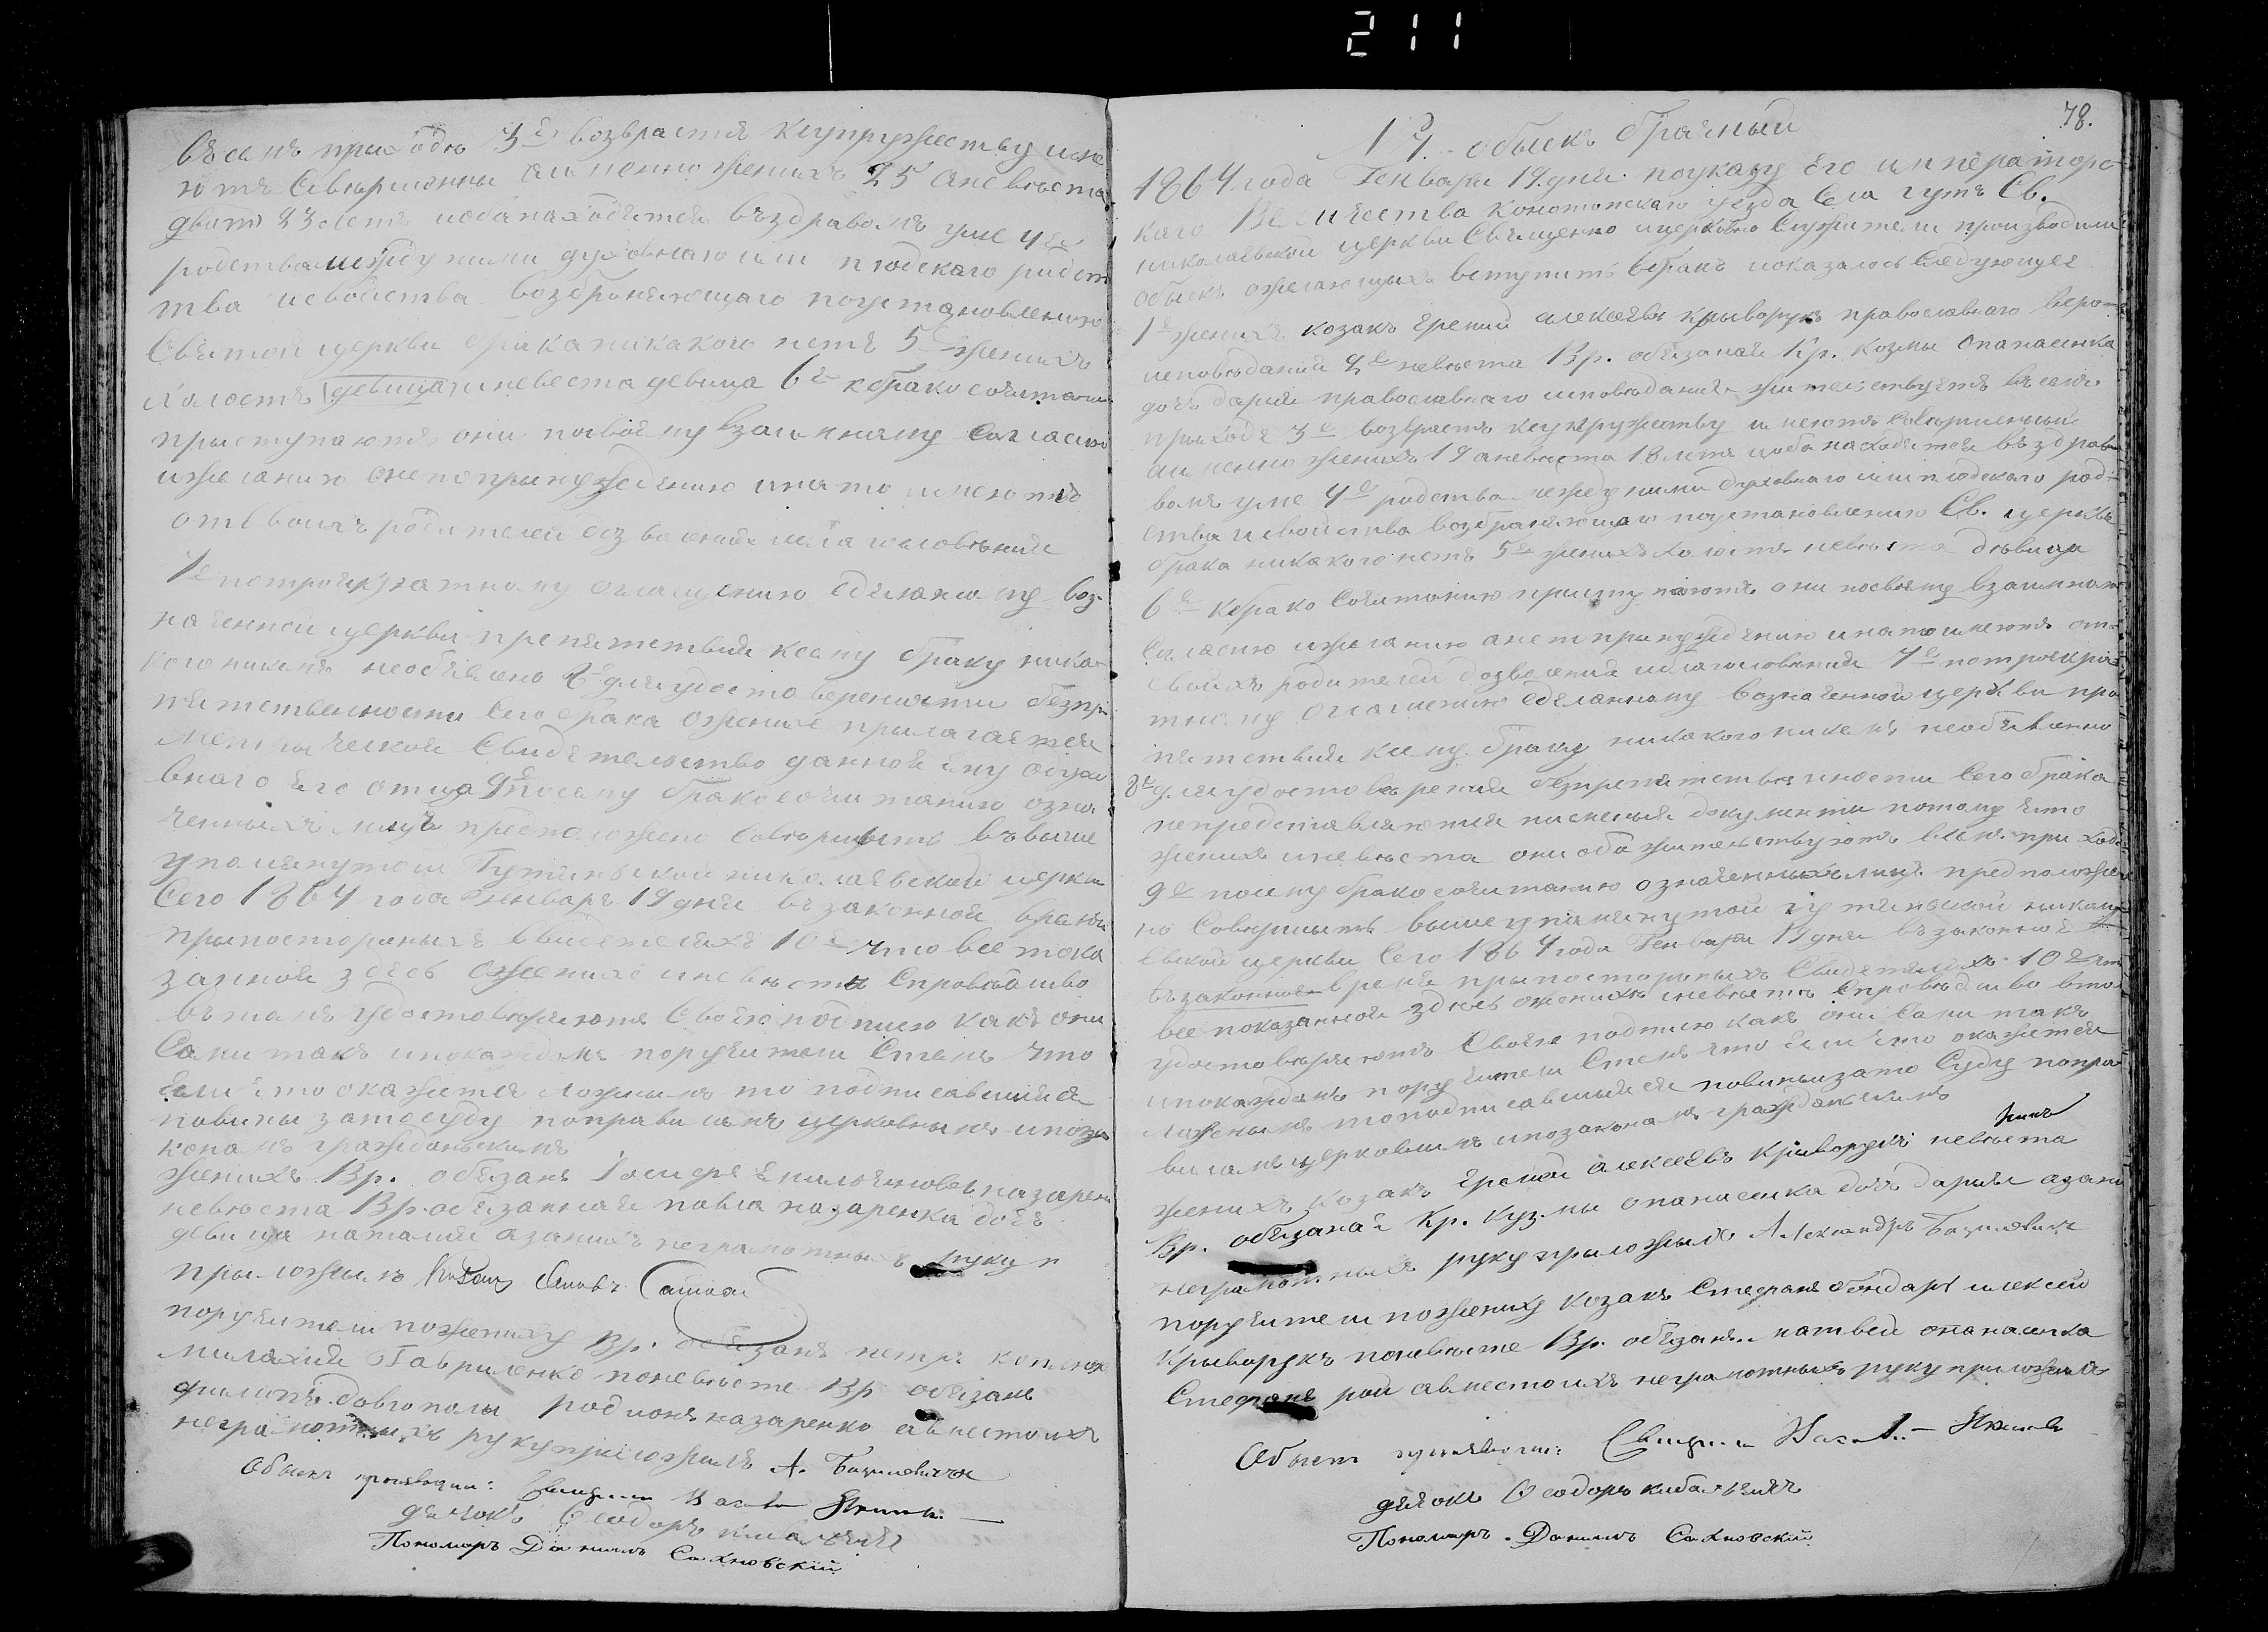 211
всемъ приходѣ 3е возраста ксупружеству име
ютъ Совершенны аименно женихъ 25 аневѣста
двать 23 летъ иоба находятся въздравомъ уме 4е
родства между ними духовнаго или плодскаго родст
тва исвойства возбраняющаго поустановлению
Святой церкви брака никакого нетъ 5е женихъ
холостъ девица иневеста девица 6е кбракосочитанию
приступаютъ они посвоему взаимному Согласию
ижеланию анепопринуждению инато имеютъ
отсвоихъ родителей озволения иблагословения
7е потроекратному оглашению зделаному воз
наченной церкви препятствия ксему браку ника
кого никемъ необявлено 8е дляудостоверености безпре
пятственности Сего брака ожениха прилагается
Метрическое Свидетельство данное ему одухо
внаго его отца 9е посему бракосочитанию озна
ченныхъ лицъ предположено Совершить въвыше
упомянутой Гутянской николаевской церкви
Сего 1864 года Генваря 19 дня въ законное время
припосторонихъ Свидетеляхъ 10е что все пока
занное здесь ожениха иневеста Справедливо
въ томъ удостоверяютъ Своею подписю какъ они
Сами такъ ипокаждомъ поручители Стемъ что
Если что окажется ложнымъ то подписавшийся
повины затосуду поправиламъ церковнымъ ипоза
конамъ гражданскимъ
женихъ Вр. обязанъ назаренко
невѣста Вр. обязанная павла назаренка дочь
девица наталия азанихъ неграмотныхъ руку
приложилъ Козакъ
поручители пожениху Вр. обязанъ петръ
Гавриленко поневѣсте Вр обязанъ
филипъ довгополы родионъ назаренко авместоихъ
неграмотныхъ рукуприложилъ А. Базилевичъ
Обыскъ производили: Священникъ
дьячокъ Ѳеодоръ Кибальчичъ
Пономарь Данiилъ Сахновскiй
78.
17. обыскъ брачный
1864 года Генваря 19. дня поуказу Его императорс
каго Величества Конотопскаго уезда Села гутъ Св.
николаевской церкви Священно ицерковно Служители производили
обыскъ ожелающихъ вступить вбракъ иоказалось Следующее
1е женихъ козакъ ерeмий алексеевъ криворукъ православнаго веро
исповѣдания 2е невѣста Вр. обязаная Кр. козмы опанасенка
дочь дария православнаго исповѣдания жителствуетъ всемъ
приходѣ 3е возрастъ ксупружеству имеютъ Совершенный
аименно женихъ 19 аневѣста 18 летъ иоба находятся въздрав
вомъ уме 4е родства между ними духовнаго или плодскаго род
ства исвойства возбраняющаго поустановлению Св. церкви
брака никакого нетъ 5е женихъ холостъ невѣста дѣвица
6е кбракосочитанию приступаютъ они посвоему взаимному
Согласию ижеланию анепопринуждению инато имеютъ от
своихъ родителей дозволения иблагословения 7е потроекра
тному оглашению зделанному вознаценной церкви пре
пятствия ксему браку никакого никемъ необявленно
8е дляудостоверения безпрепятственности Сего брака
непредставляются писменыя документи потому что
женихъ иневѣста они оба жителствуютъ всемъ приходе
9е посему бракосочитанию означенныхъ лицъ предположе
но Совершить вышеупомянутой гутянской никола
евской церкви Сего 1864 года Генваря 19 дня въ законное
въ законное время припосторонихъ Свидетеляхъ 10е что
все показанное здѣсь ожениха иневѣста Справѣдливо втомъ
удостоверяютъ Своею подписю какъ они Сами такъ
ипокаждомъ поручители Стемъ что если что окажется
ложнымъ топодписавшыйся повины зато Суду попра
виламъ церковнымъ ипозаконамъ гражданскимъ
женихъ козакъ ерeмей алексеевъ криворукъ невѣста
Вр. обязаная Кр. кузмы опанасенка дочь дария азани
неграмотныхъ руку приложилъ Александръ Базилевичъ
поручители пожениху козакъ Стефанъ бондарь алексей
Криворукъ поневѣсте Вр. обязанъ матвей опанасенка
Стефанъ рой авместоихъ неграмотныхъ руку приложилъ
Обыскъ производили: Священникъ
дьячокъ Ѳеодоръ Кибальчичъ
Пономарь Данiилъ Сахновскiй